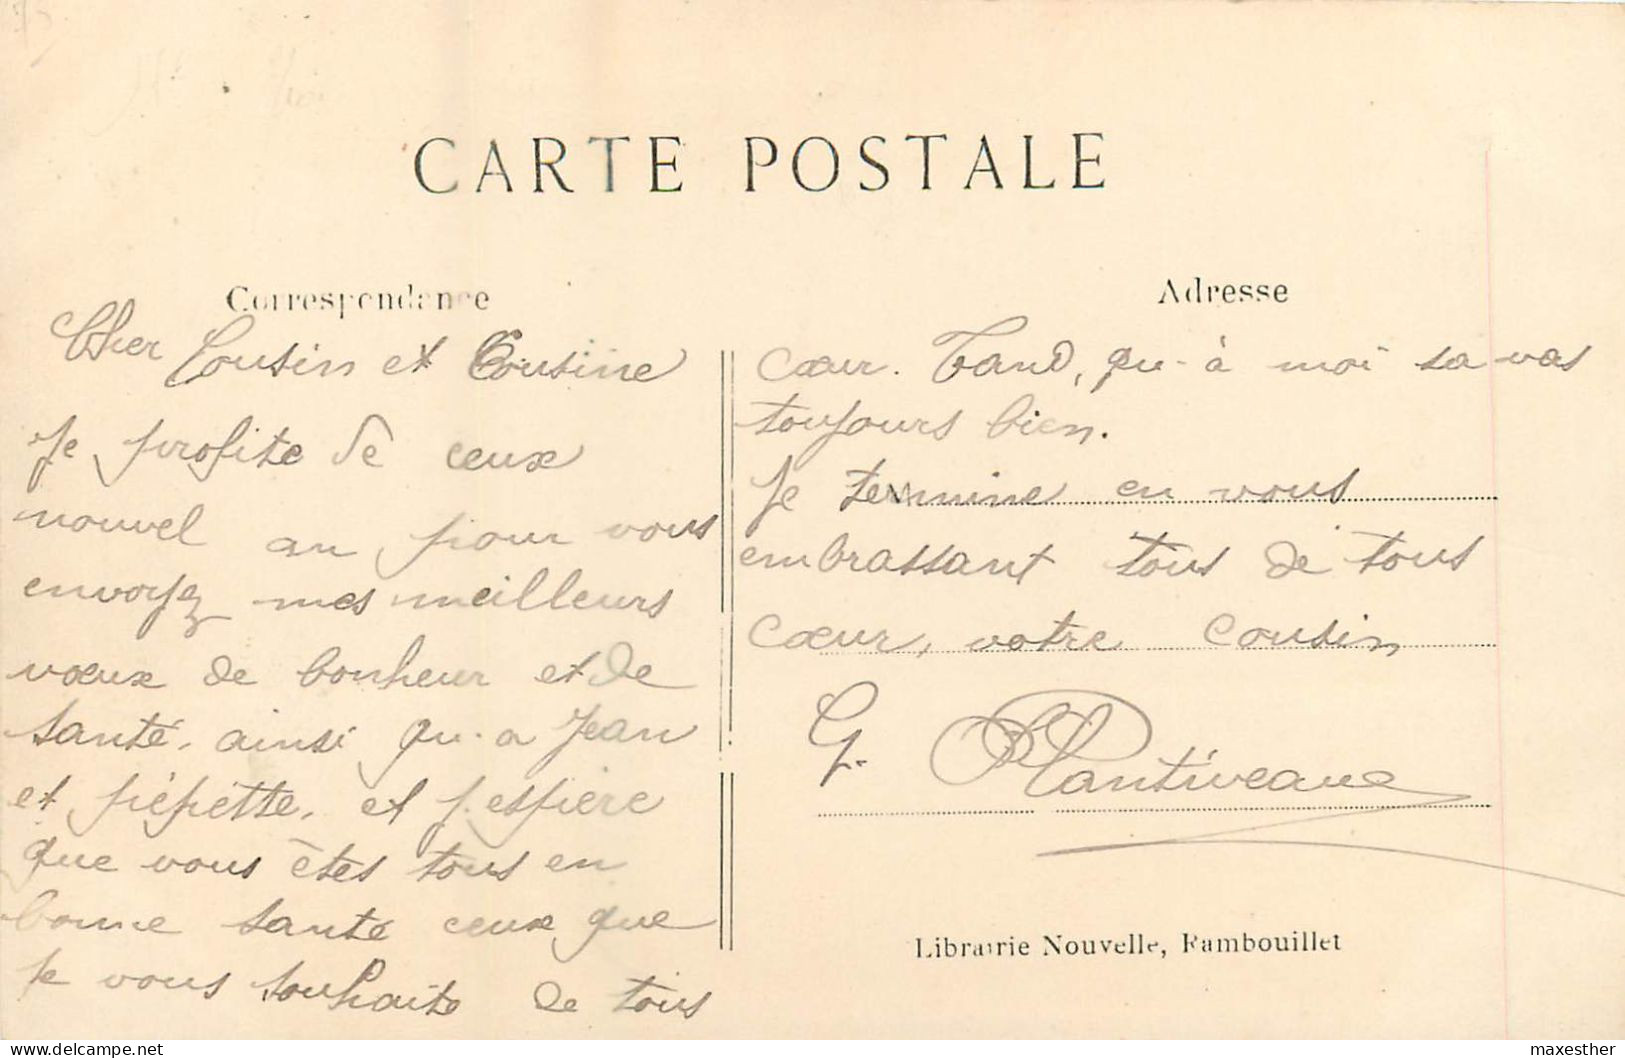 CARTE POSTALE
Correspondance
Cher Cousin et Cousine
Je profite de ceux
nouvel an pour vous
envoyez mes meilleurs
vœux de bonheur et de
santé, ainsi qu'a Jean
et pépette, et j'espère
que vous êtes tous en
bonne santé ceux que
je vous souhaite de tous
Adresse
cœur. Tand, qu-à moi sa vas
toujours bien.
Je termine en vous
embrassant tous de tous
cœur, votre cousin
G. Plantiveaux
Librairie Nouvelle, Rambouillet
www.delcampe.net
maxesther